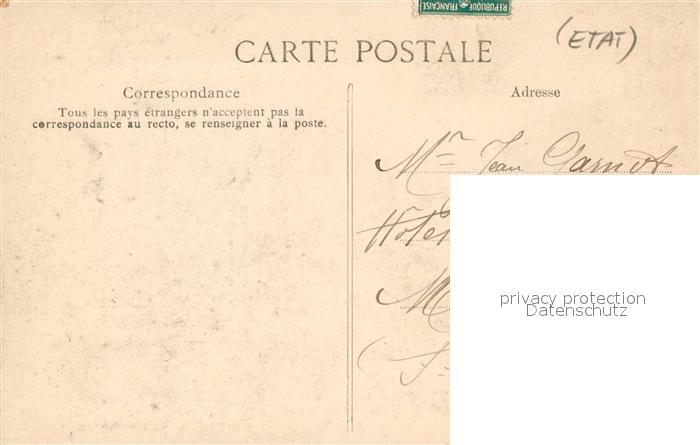 RÉPUBLIQUE FRANÇAISE
CARTE POSTALE
(ETAT)
Correspondance
Tous les pays étrangers n'acceptent pas la
correspondance au recto, se renseigner à la poste.
Adresse
Mr Jean Garnot
Hotel
M
privacy protection
Datenschutz